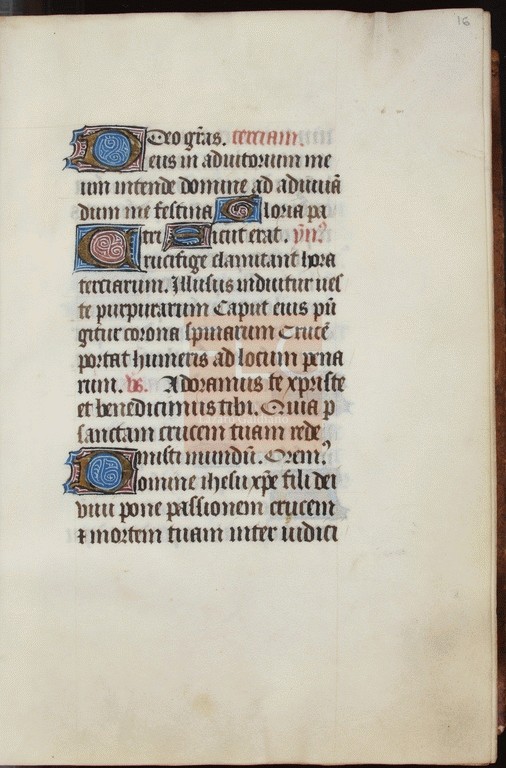 16
Deo grãs. terciam.
Deus in adiutorium me
um intende domine ad adiuuã
dum me festina Gloria pa
tri Sicut erat. ym̃
Crucifige clamitant hora
terciarum. Illusus induitur ves
te purpurarum Caput eius pũ
gitur corona spinarum Crucẽ
portat humeris ad locum pena
rum. vs. Adoramus te xpriste
et benedicimus tibi. Quia p
sanctam crucem tuam rede
misti mundũ. Orem9
Domine ihesu xp̃e fili dei
viui pone passionem crucem
⁊ mortem tuam inter iudici